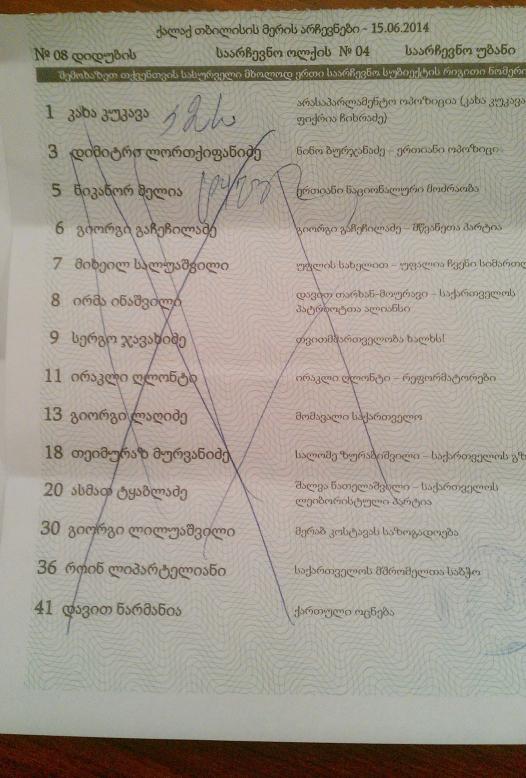 ქალაქ თბილისის მერის არჩევნები - 15.06.2014
№ 08 დიდუბის საარჩევნო ოლქის № 04 საარჩევნო უბანი
შემოხაზეთ თქვენთვის სასურველი მხოლოდ ერთი საარჩევნო სუბიექტის რიგითი ნომერი
1 კახა კუკავა არასაპარლამენტო ოპოზიცია (კახა კუკავა
ფიქრია ჩიხრაძე)
3 დიმიტრი ლორთქიფანიძე ნინო ბურჯანაძე – ერთიანი ოპოზიცი
5 ნიკანორ მელია ერთიანი ნაციონალური მოძრაობა
6 გიორგი გაჩეჩილაძე გიორგი გაჩეჩილაძე – მწვანეთა პარტია
7 მიხეილ სალუაშვილი უფლის სახელით – უფალია ჩვენი სიმართლ
8 ირმა ინაშვილი დავით თარხან-მოურავი – საქართველოს
პატრიოტთა ალიანსი
9 სერგო ჯავახიძე თვითმმართველობა ხალხს!
11 ირაკლი ღლონტი ირაკლი ღლონტი – რეფორმატორები
13 გიორგი ლაღიძე მომავალი საქართველო
18 თეიმურაზ მურვანიძე სალომე ზურაბიშვილი – საქართველოს გზ
20 ასმათ ტყაბლაძე შალვა ნათელაშვილი – საქართველოს
ლეიბორისტული პარტია
30 გიორგი ლილუაშვილი მერაბ კოსტავას საზოგადოება
36 როინ ლიპარტელიანი საქართველოს მშრომელთა საბჭო
41 დავით ნარმანია ქართული ოცნება